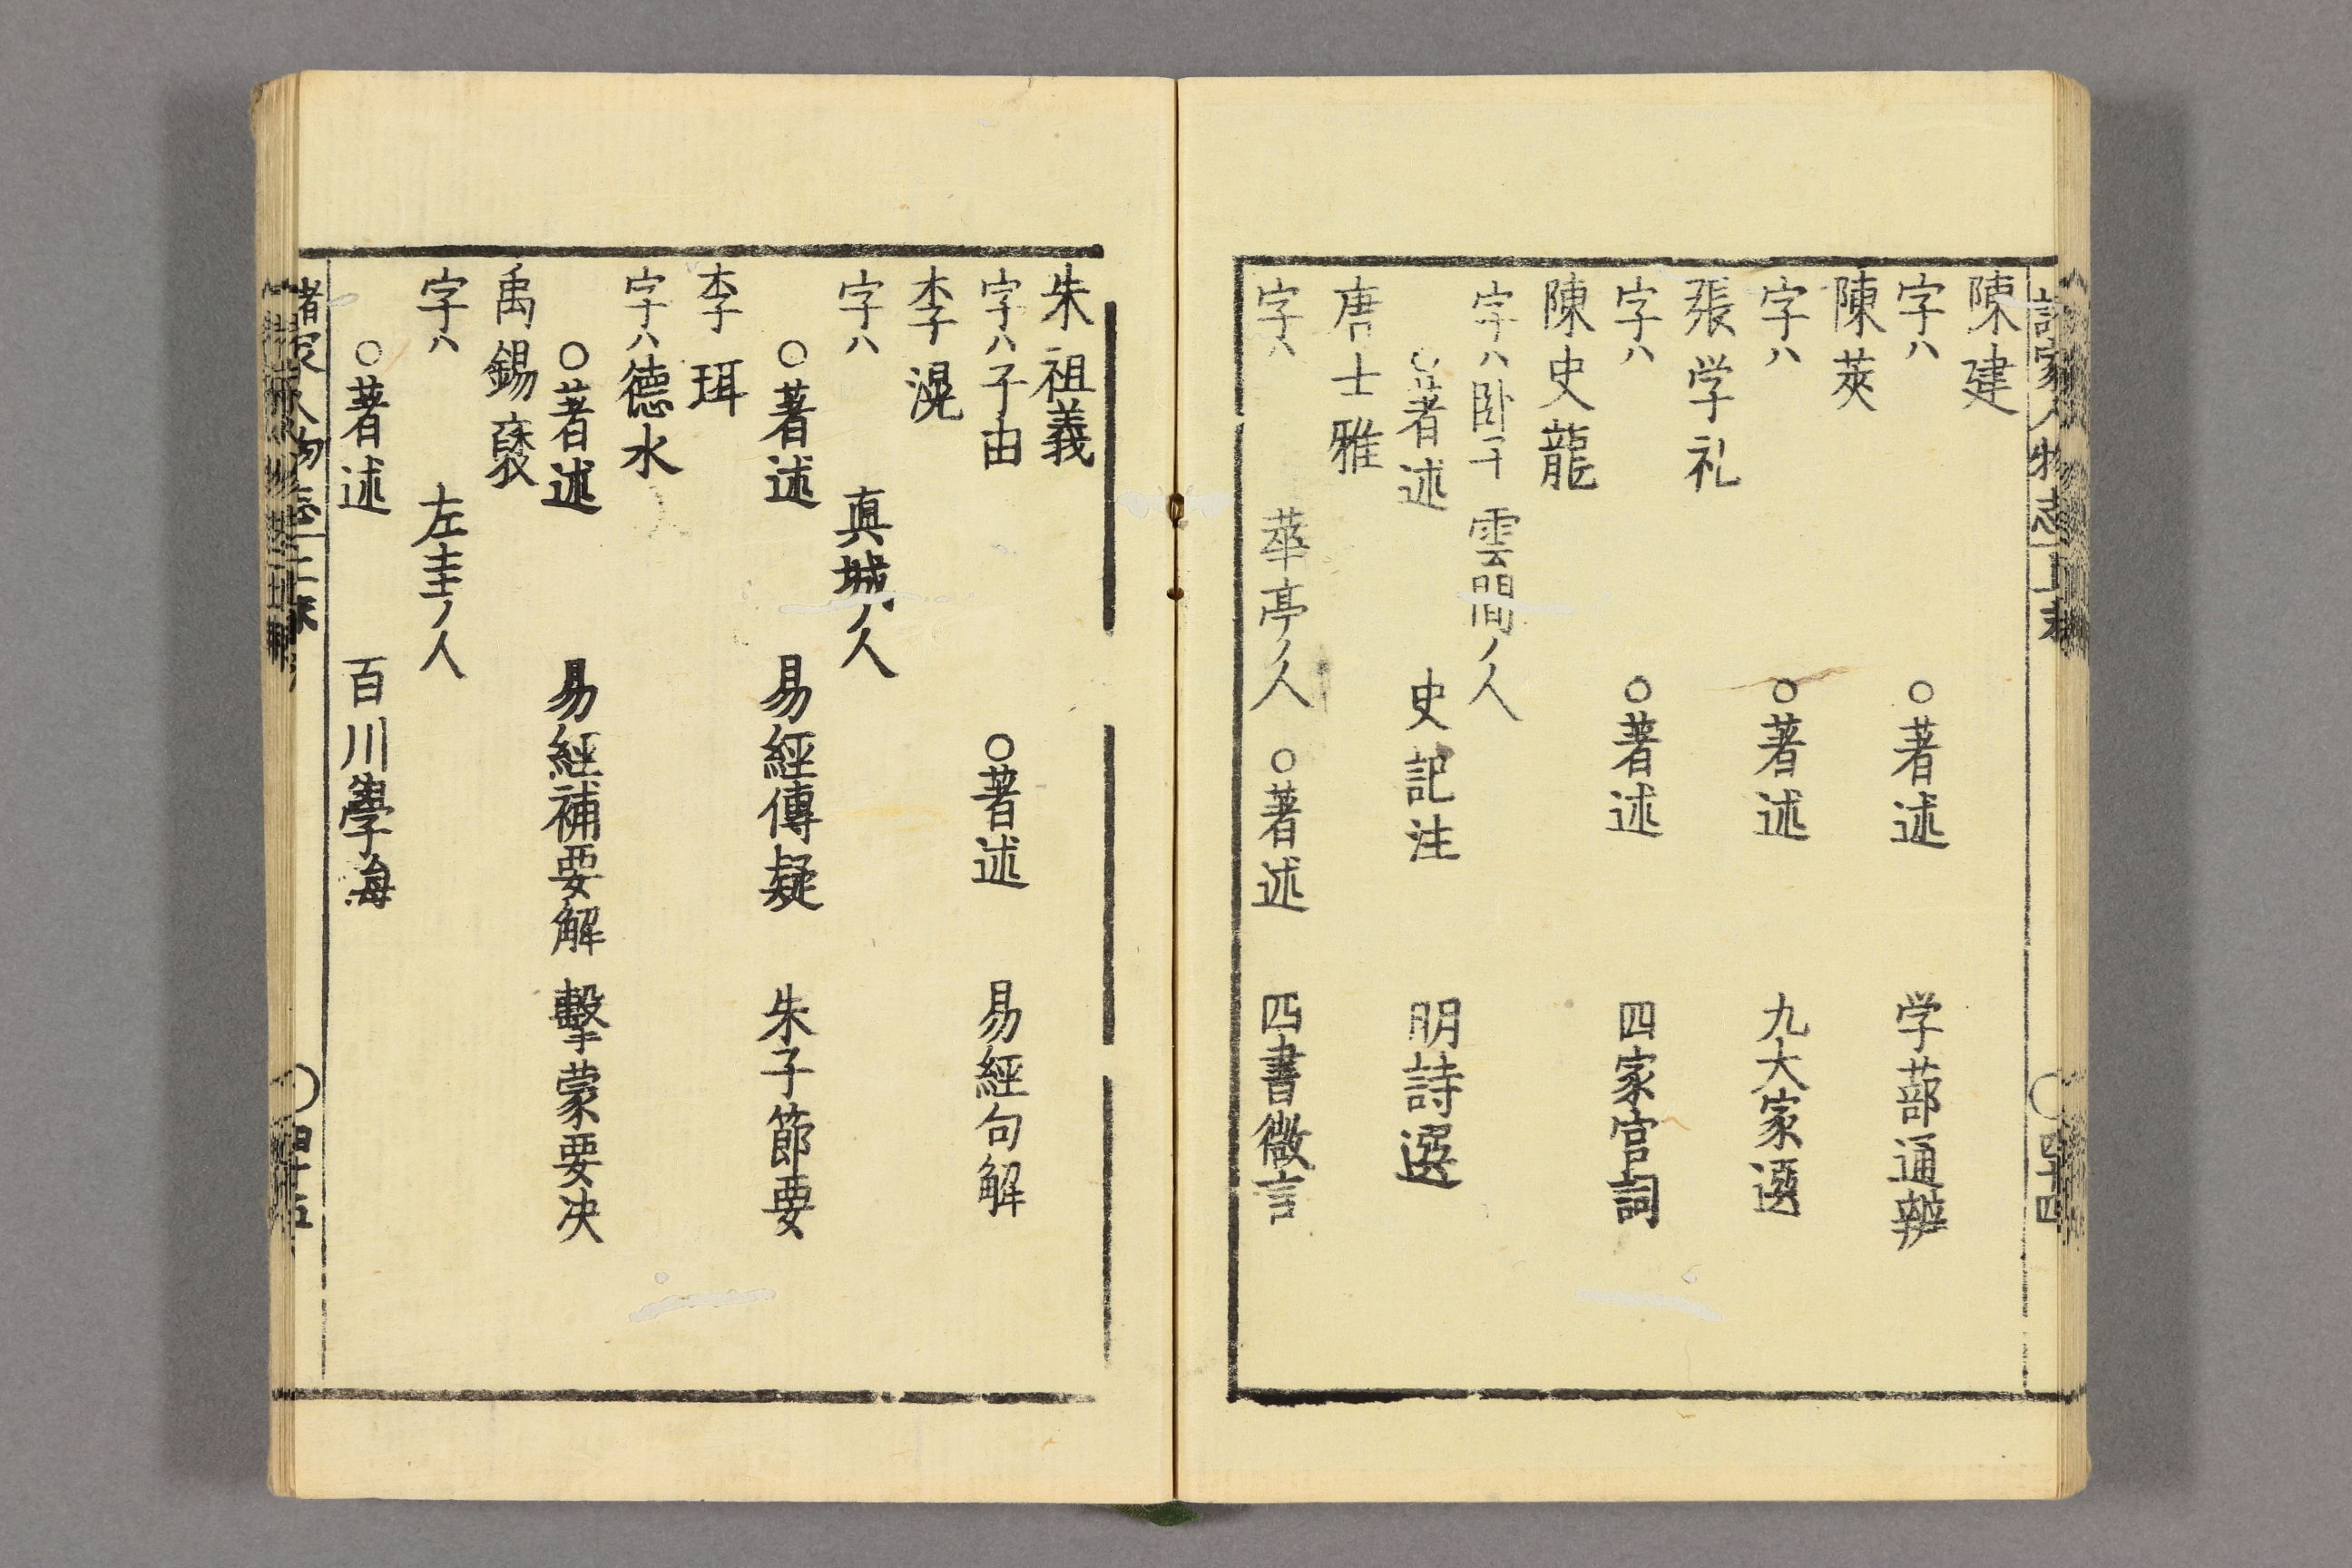 諸家人物志 上末
四十四
陳建
字ハ ○著述 学蔀通辨
陳莢
字ハ ○著述 九大家選
張学礼
字ハ ○著述 四家宮詞
陳史龍
字ハ卧子 雲間ノ人
○著述 史記注 明詩選
唐士雅
字ハ 華亭ノ人 ○著述 四書微言
朱祖義
字ハ子由 ○著述 易經句解
李滉
字ハ 真城ノ人
○著述 易經傳疑 朱子節要
李珥
字ハ德水
○著述 易經補要解 擊蒙要决
禹錫
字ハ 左圭ノ人
○著述 百川學海
諸家人物志 上末
四十五